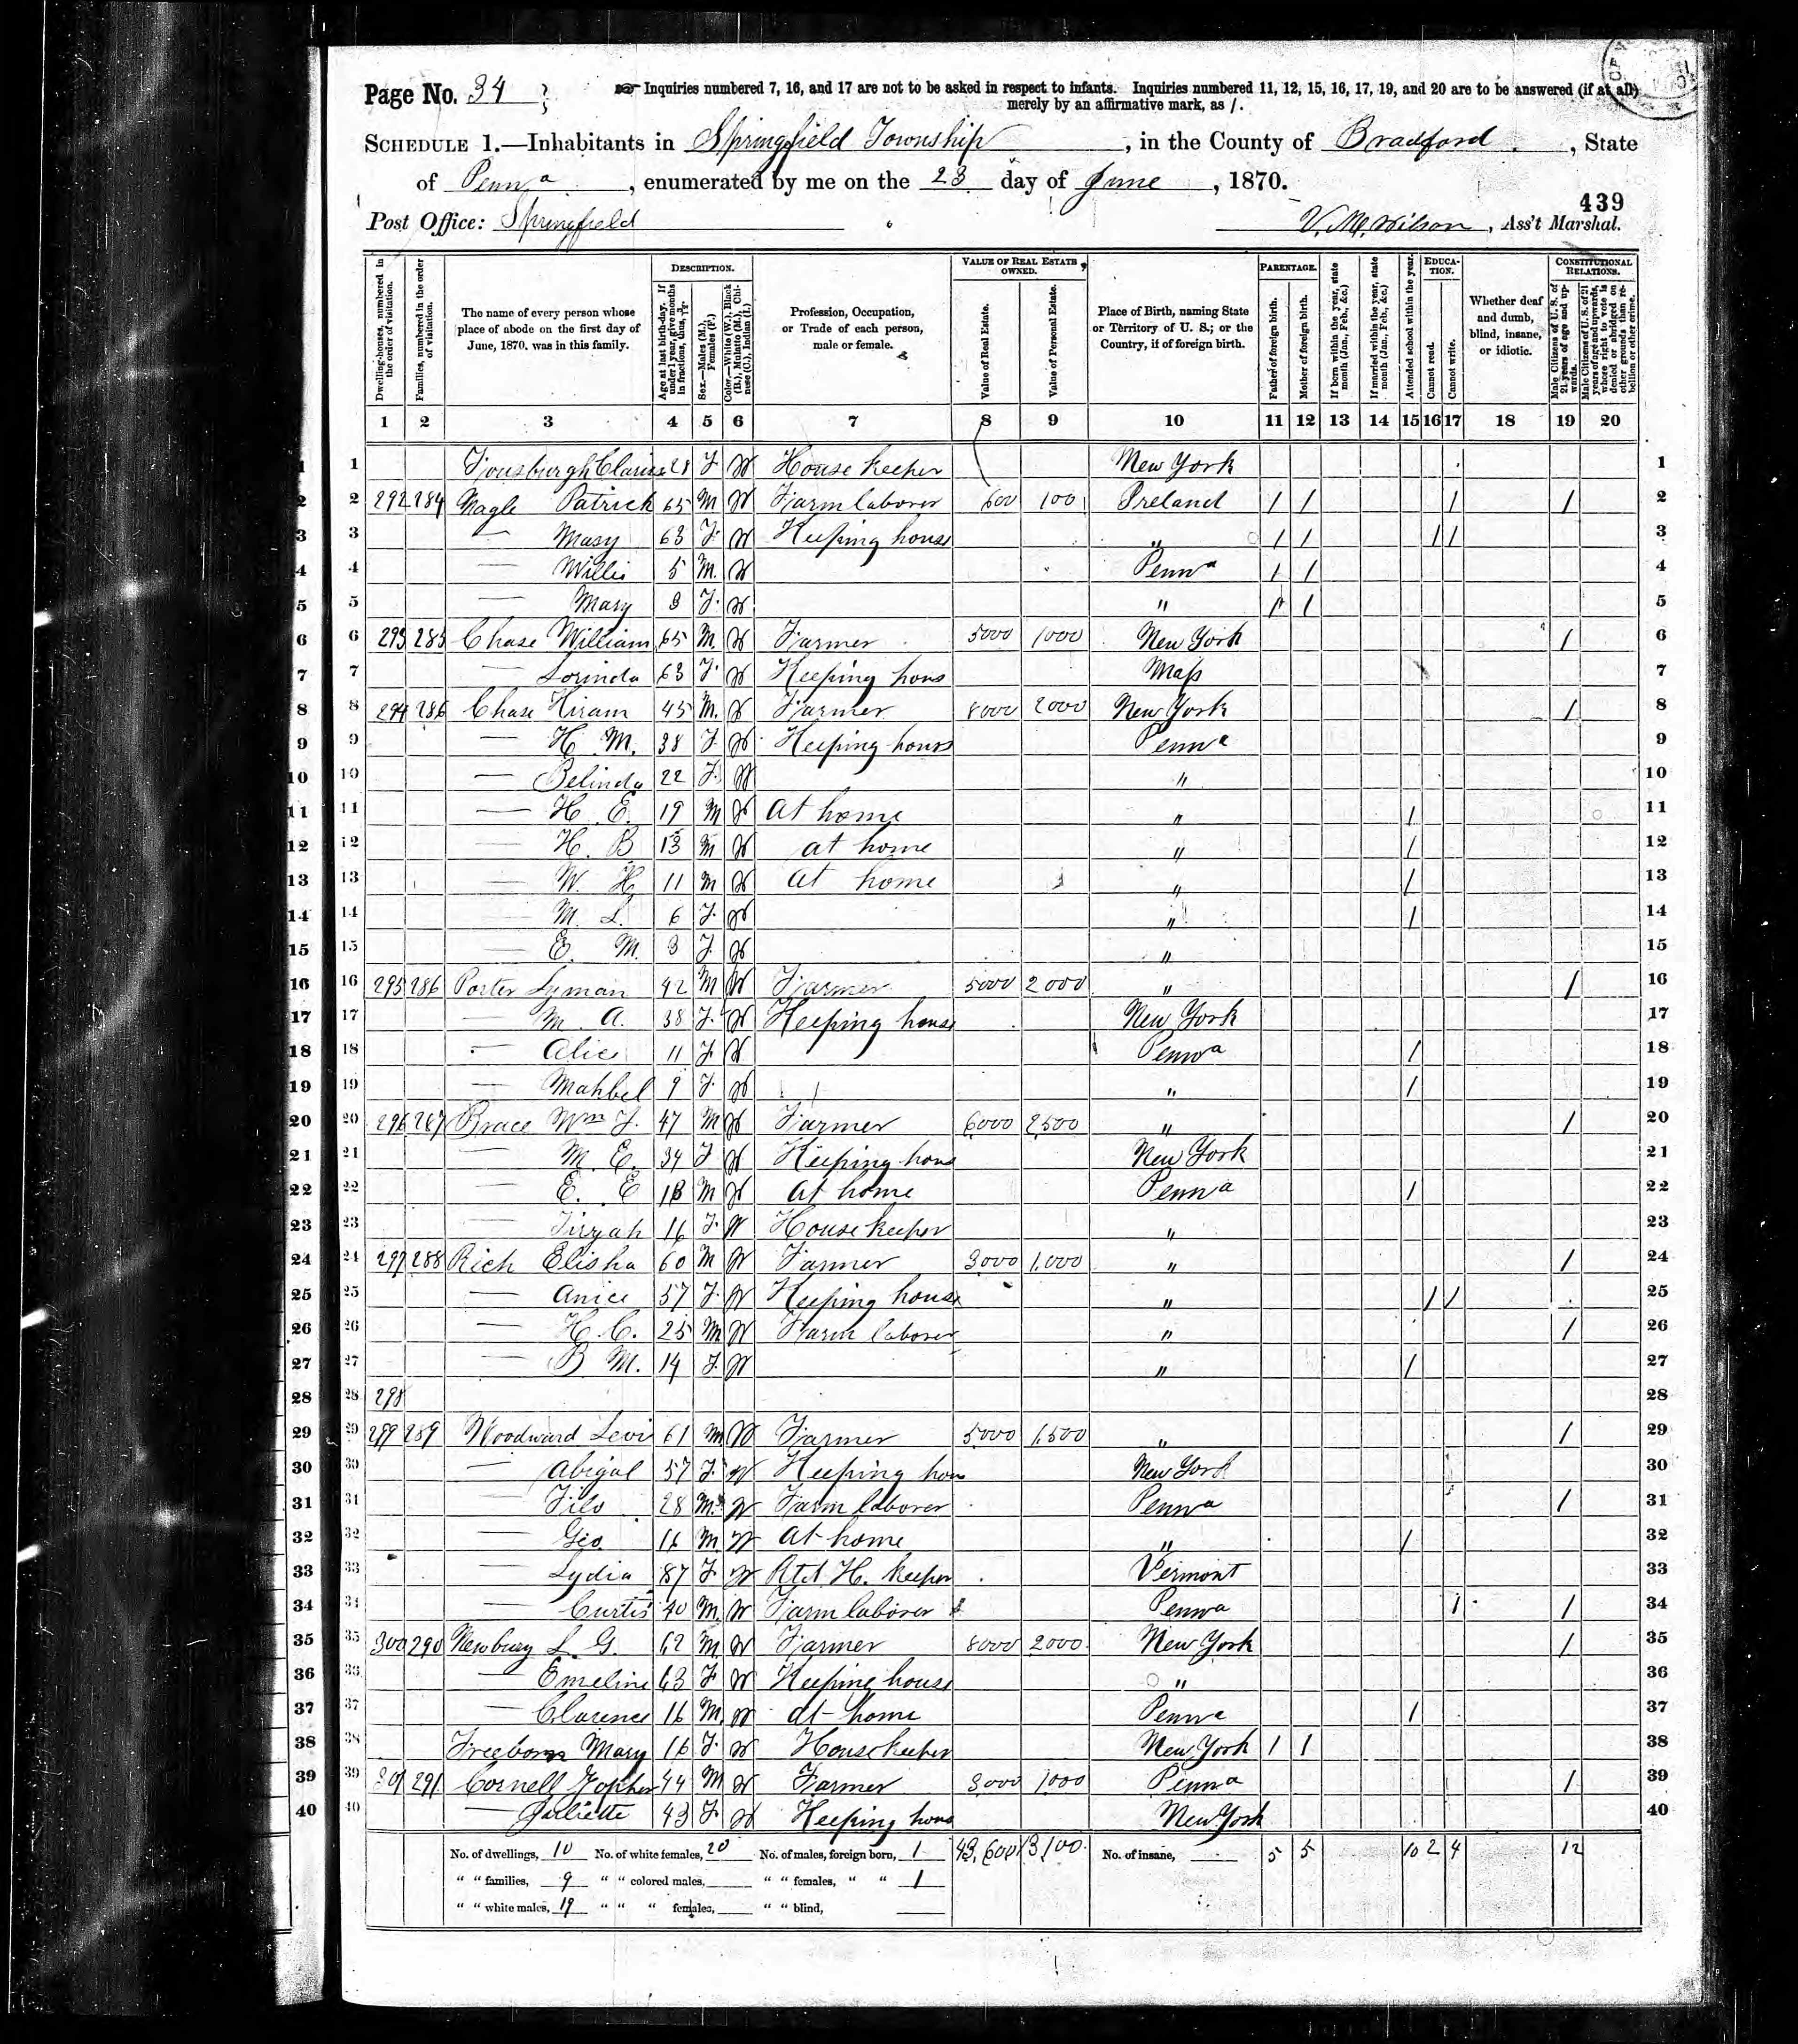 Page No. 34
Inquiries numbered 7, 16, and 17 are not to be asked in respect to infants. Inquiries numbered 11, 12, 15, 16, 17, 19, and 20 are to be answered (if at all)
merely by an affirmative mark, as /.
SCHEDULE 1.—Inhabitants in Springfield Township, in the County of Bradford, State
of Penna, enumerated by me on the 23 day of June, 1870.
439
Post Office: Springfield V. M. Wilson, Ass't Marshal.
Dwelling-houses, numbered in the order of visitation.
Families, numbered in the order of visitation.
The name of every person whose place of abode on the first day of June, 1870, was in this family.
DESCRIPTION.
Age at last birth-day. If under 1 year, give months in fractions, thus,
Sex.—Males (M.), Females (F.)
Color.—White (W.), Black (B.), Mulatto (M.), Chinese (C.), Indian (I.)
Profession, Occupation, or Trade of each person, male or female.
VALUE OF REAL ESTATE OWNED.
Value of Real Estate.
Value of Personal Estate.
Place of Birth, naming State or Territory of U. S.; or the Country, if of foreign birth.
PARENTAGE.
Father of foreign birth.
Mother of foreign birth.
If born within the year, state month (Jan., Feb., &c.)
If married within the year, state month (Jan., Feb., &c.)
Attended school within the year.
EDUCATION.
Cannot read.
Cannot write.
Whether deaf and dumb, blind, insane, or idiotic.
CONSTITUTIONAL RELATIONS.
Male Citizens of U. S. of 21 years of age and upwards.
Male Citizens of U. S. of 21 years of age and upwards, whose right to vote is denied or abridged on other grounds than rebellion or other crime.
1 2 3 4 5 6 7 8 9 10 11 12 13 14 15 16 17 18 19 20
1 28 F W House keeper New York 1
2 292 284 Nagle Patrick 65 M W Farm laborer 600 100 Ireland / / / / 2
3 — Mary 63 F W Keeping house " / / / / 3
4 — Willis 5 M W Penna / / 4
5 — Mary 3 F W " / / 5
6 293 285 Chase William 65 M W Farmer 5000 1000 New York / 6
7 — Lorinda 63 F W Keeping hous Mass 7
8 294 286 Chase Hiram 45 M W Farmer 8000 2000 New York / 8
9 — H. M. 38 F W Keeping hous Penna 9
10 — Belinda 22 F W " 10
11 — H. E. 19 M W at home " / 11
12 — H. B 13 M W at home " / 12
13 — W. H 11 M W at home " / 13
14 — M. L. 6 F W " / 14
15 — E. M. 3 F W " 15
16 295 286 Porter Lyman 42 M W Farmer 5000 2000 " / 16
17 — M. A. 38 F W Keeping house New York 17
18 — Alice 11 F W Penna / 18
19 — Mahbel 9 F W " / 19
20 296 287 Brace Wm F. 47 M W Farmer 6000 2500 " / 20
21 — M. E. 34 F W Keeping hous New York 21
22 — E. E 18 M W at home Penna / 22
23 — Tirzah 16 F W House keeper " 23
24 297 288 Rich Elisha 60 M W Farmer 3000 1,000 " / 24
25 — Anice 57 F W Keeping house " / / 25
26 — H. C. 25 M W Farm laborer " / 26
27 — B M. 14 F W " / 27
28 298 28
29 299 289 Woodward Levi 61 M W Farmer 5000 1,500 " / 29
30 — Abigal 57 F W Keeping hous New York 30
31 — Filo 28 M W Farm laborer Penna / 31
32 — Geo. 16 M W at home " / 32
33 — Lydia 87 F W Retd H. Keeper Vermont 33
34 — Curtis 40 M W Farm laborer Penna / / 34
35 300 290 Newbury L. G. 62 M W Farmer 8000 2000 New York / 35
36 — Emeline 63 F W Keeping house " 36
37 — Clarence 16 M W at home Penna / 37
38 Freeborn Mary 16 F W House keeper New York / / 38
39 301 291 Cornell 44 M W Farmer 3000 1000 Penna / 39
40 — Julliette 43 F W Keeping hous New York 40
No. of dwellings, 10 No. of white females, 20 No. of males, foreign born, 1 43,600 13,100 No. of insane, 5 5 10 2 4 12
" " families, 9 " " colored males, " " females, " " 1
" " white males, 19 " " " females, " " blind,